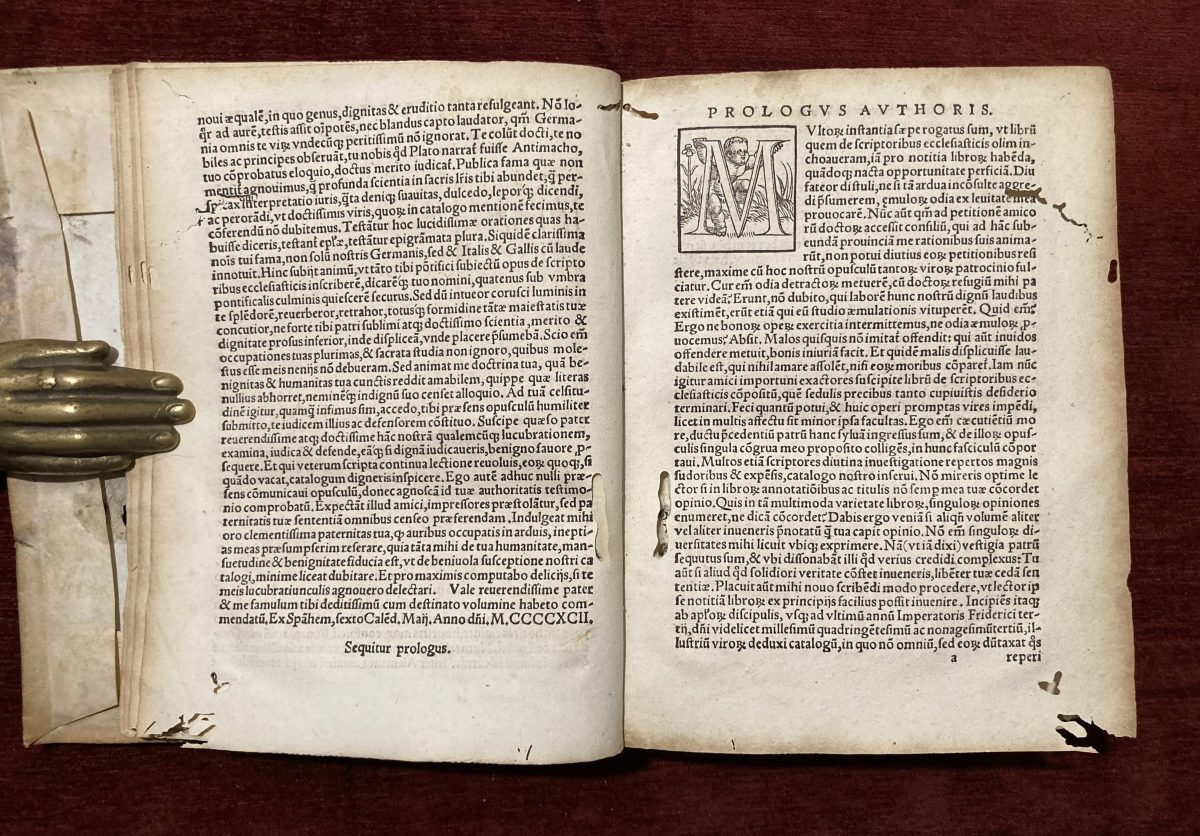 noui æqualē, in quo genus, dignitas & eruditio tanta refulgeant. Nō lo-
q̄r ad aurē, testis assit oīpotēs, nec blandus capto laudator, qm̄ Germa-
nia omnis te viꝝ vndecūqꝫ peritissimū nō ignorat. Te colūt docti, te no
biles ac principes obseruāt, tu nobis qd̄ Plato narrat̄ fuisse Antimacho,
tuo cōprobatus eloquio, doctus merito iudicas̄. Publica fama quæ non
mentit̄ agnouimus, ꝙ profunda scientia in sacris lr̄is tibi abundet, ꝙ per-
spicax interpretatio iuris, qͣta deniqꝫ suauitas, dulcedo, leporqꝫ dicēdi,
ac perorādi, vt doctissimis viris, quoꝝ in catalogo mentionē fecimus, te
cōferēdū nō dubitemus. Testāt̄ hoc lucidissimæ orationes quas ha-
buisse diceris, testant̄ epl̄æ, testāt̄ epigrāmata plura. Siquidē clarissima
noīs tui fama, non solū nostris Germanis, sed & Italis & Gallis cū laude
innotuit. Hinc subijt animū, vt tāto tibi pōtifici subiectū opus de scripto
ribus ecclesiasticis inscriberē, dicarēqꝫ tuo nomini, quatenus sub vmbra
pontificalis culminis quiescerē securus. Sed dū intueor corusci luminis in
te splēdorē, reuerberor, retrahor, totusqꝫ formidine tātæ maiestatis tuæ
concutior, ne forte tibi patri sublimi atqꝫ doctissimo scientia, merito &
dignitate prosus inferior, inde displiceā, vnde placere p̄sumebā. Scio em̄
occupationes tuas plurimas, & sacrata studia non ignoro, quibus mole-
stus esse meis nenijs nō debueram. Sed animat me doctrina tua, quā be-
nignitas & humanitas tua cunctis reddit amabilem, quippe quæ literas
nullius abhorret, neminēqꝫ indignū suo censet alloquio. Ad tuā celsitu-
dinē igitur, quamqꝫ infimus sim, accedo, tibi præsens opusculū humiliter
submitto, te iudicem illius ac defensorem cōstituo. Suscipe quæso pater
reuerendissime atqꝫ doctissime hāc nostrā qualemcūqꝫ lucubrationem,
examina, iudica & defende, eāqꝫ si dignā iudicaueris, benigno fauore ꝓ-
sequere. Et qui veterum scripta continua lectione reuoluis, eoꝝ quoqꝫ, si
quādo vacat, catalogum digneris inspicere. Ego autē adhuc nulli præ-
sens cōmunicaui opusculū, donec agnoscā id tuæ authoritatis testimo-
nio comprobatū. Expectāt illud amici, impressores præstolāt̄, sed pa-
ternitatis tuæ sententiā omnibus censeo præferendam. Indulgeat mihi
oro clementissima paternitas tua, ꝙ auribus occupatis in arduis, inepti-
as meas præsumpserim reserare, quia tāta mihi de tua humanitate, man-
suetudine & benignitate fiducia est, vt de beniuola susceptione nostri ca
talogi, minime liceat dubitare. Et pro maximis computabo delicijs, si te
meis lucubratiunculis agnouero delectari. Vale reuerendissime pater
& me famulum tibi deditissimū cum destinato volumine habeto com-
mendatū, Ex Spāhem, sexto Calēd. Maij. Anno dn̄i, M,CCCCXCII.
Sequitur prologus.
PROLOGVS AVTHORIS.
MVltoꝝ instantia sæpe rogatus sum, vt librū
quem de scriptoribus ecclesiasticis olim in-
choaueram, iā pro notitia libroꝝ habēda,
quādoqꝫ nacta opportunitate perficiā. Diu
fateor distuli, ne si tā ardua incōsulte aggre-
di p̄sumerem, ęmuloꝝ odia ex leuitate mea
prouocarē. Nūc aūt qm̄ ad petitionē amico
rū doctoꝝ accessit consiliū, qui ad hāc sub-
eundā prouinciā me rationibus suis anima-
rūt, non potui diutius eoꝝ petitionibus resi
stere, maxime cū hoc nostrū opusculū tantoꝝ viroꝝ patrocinio ful-
ciatur. Cur em̄ odia detractoꝝ metuerē, cū doctoꝝ refugiū mihi pa
tere videā? Erunt, nō dubito, qui laborē hunc nostrū dignū laudibus
existimēt, erūt etiā qui eū studio æmulationis vituperēt. Quid em̄?
Ergo ne bonoꝝ operꝝ exercitia intermittemus, ne odia æmuloꝝ ꝓ-
uocemus? Absit. Malos quisquis nō imitat̄ offendit: qui aūt inuidos
offendere metuit, bonis iniuriā facit. Et quidē malis displicuisse lau-
dabile est, qui nihil amare assolēt, nisi eoꝝ moribus cōparet̄. Iam nūc
igitur amici importuni exactores suscipite librū de scriptoribus ec-
clesiasticis cōpositū, quē sedulis precibus tanto cupiuistis desiderio
terminari. Feci quantū potui, & huic operi promptas vires impēdi,
licet in multis affectu sit minor ipsa facultas. Ego em̄ cæcutiētiū mo
re, ductu p̄cedentiū patrū hanc syluā ingressus sum, & de illoꝝ opus-
culis singula cōgrua meo proposito colligēs, in hunc fasciculū cōpor
taui. Multos etiā scriptores diutina inuestigatione repertos magnis
sudoribus & expēsis, catalogo nostro inserui. Nō mireris optime le
ctor si in libroꝝ annotatiōibus ac titulis nō semp mea tuæ cōcordet
opinio. Quis in tā multimoda varietate libroꝝ, singuloꝝ opiniones
enumeret, ne dicā cōcordet? Dabis ergo veniā si aliqn̄ volumē aliter
vel aliter inueneris p̄notatū qͣ tua capit opinio. Nō em̄ singuloꝝ di-
uersitates mihi licuit vbiqꝫ exprimere. Nā (vt iā dixi) vestigia patrū
sequutus sum, & vbi dissonabāt illi qd̄ verius credidi complexus: Tu
aūt si aliud qd̄ solidiori veritate cōstet inueneris, libēter tuæ cedā sen
tentiæ. Placuit aūt mihi nouo scribēdi modo procedere, vt lector ip
se notitiā libroꝝ ex principijs facilius possit inuenire. Incipiēs itaqꝫ
ab apl̄oꝝ discipulis, vsqꝫ ad vltimū annū Imperatoris Friderici ter-
tij, dn̄i videlicet millesimū quadringētesimū ac nonagesimūtertiū, il-
lustriū viroꝝ deduxi catalogū, in quo nō omniū, sed eoꝝ dūtaxat q̄s
a reperi